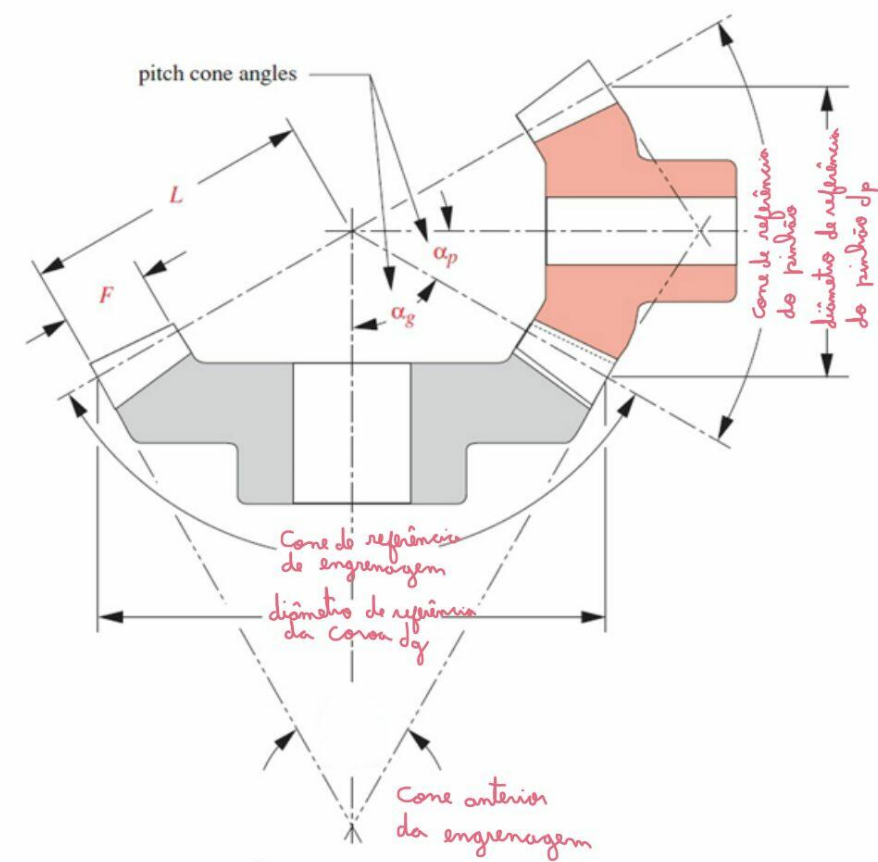 pitch cone angles
L
F
αp
αg
Cone de referência
do pinhão
diâmetro de referência
do pinhão dp
Cone de referência
de engrenagem
diâmetro de referência
da coroa dg
Cone anterior
da engrenagem